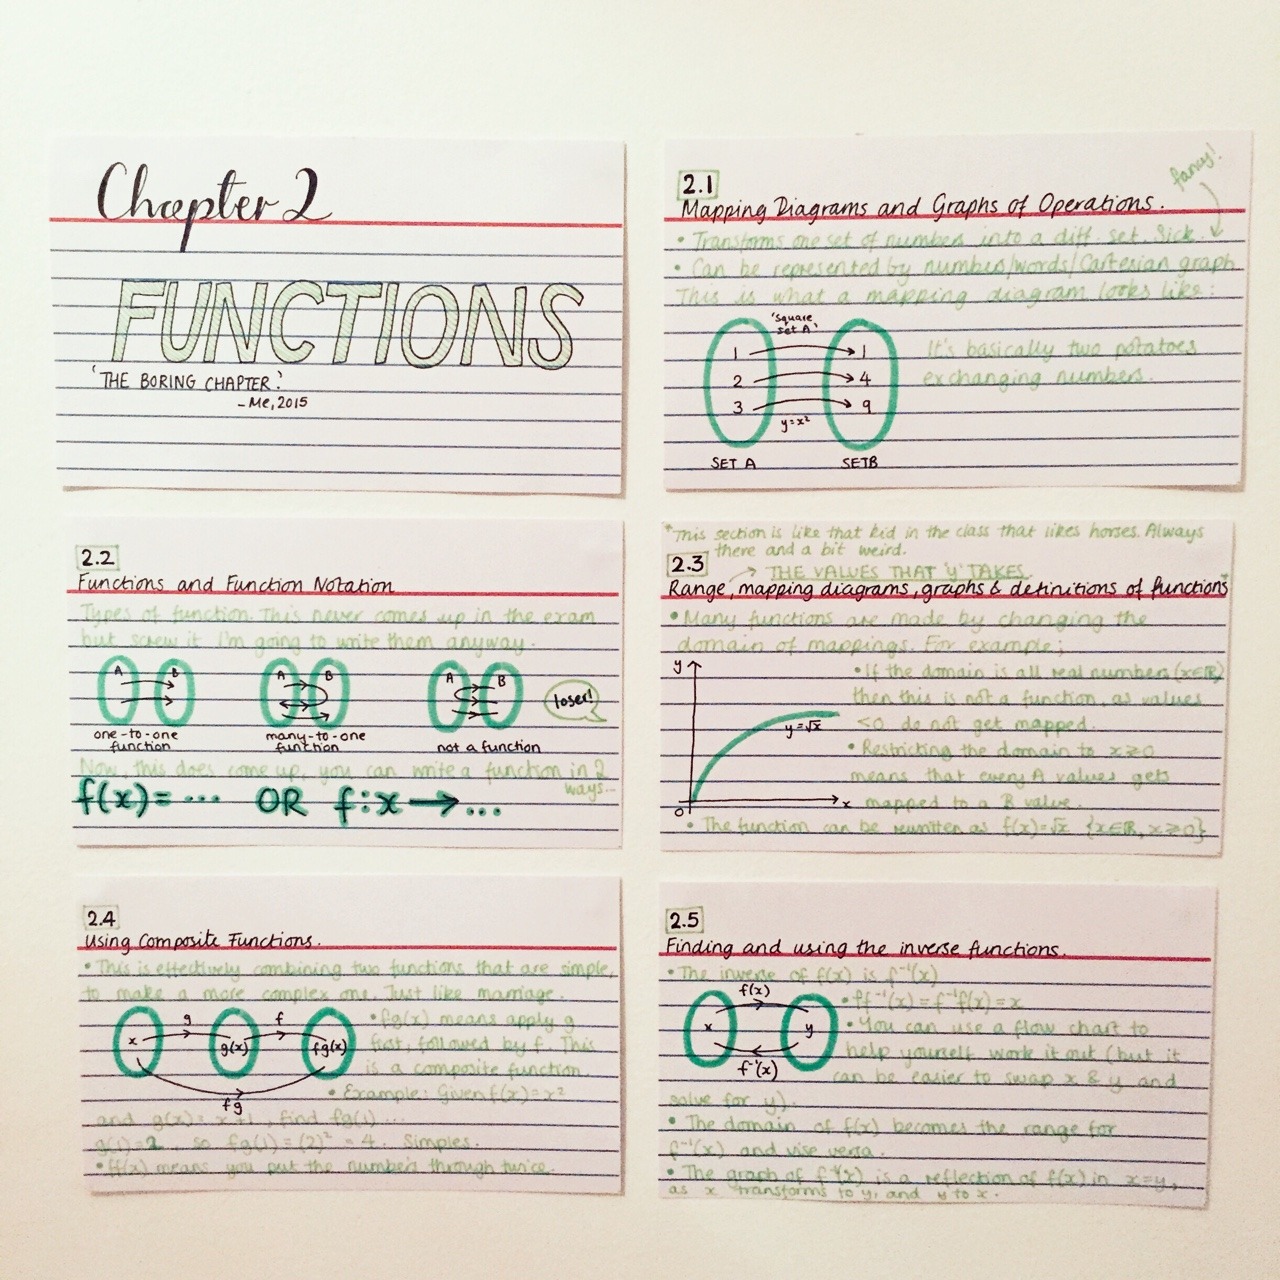 Chapter 2
FUNCTIONS
'THE BORING CHAPTER.'
- Me, 2015
fancy!
2.1
Mapping Diagrams and Graphs of Operations.
• Transforms one set of numbers into a diff. set. Sick.
• Can be represented by number/words/Cartesian graph
This is what a mapping diagram looks like:
'square
set A'
1 1
2 4
3 9
y=x²
SET A SET B
It's basically two potatoes
exchanging numbers.
2.2
Functions and Function Notation
Types of function. This never comes up in the exam
but screw it I'm going to write them anyway.
A B
A B
A B
loser!
one-to-one
function
many-to-one
function
not a function
Now, this does come up, you can write a function in 2
ways...
f(x)= ... OR f:x → ...
*This section is like that kid in the class that likes horses. Always
there and a bit weird.
2.3
→ THE VALUES THAT 'Y' TAKES
Range, mapping diagrams, graphs & definitions of functions
• Many functions are made by changing the
domain of mappings. For example;
y
x
0
y=√x
• If the domain is all real numbers (x∈ℝ)
then this is not a function, as values
<0 do not get mapped.
• Restricting the domain to x≥0
means that every A values gets
mapped to a B value.
• The function can be rewritten as f(x)=√x {x∈ℝ, x≥0}
2.4
Using Composite Functions.
• This is effectively combining two functions that are simple,
to make a more complex one. Just like marriage.
g f
x g(x) fg(x)
fg
• fg(x) means apply g
first, followed by f. This
is a composite function.
• Example: Given f(x)=x²
and g(x)= x+1, find fg(1)...
g(1)=2, so fg(1)=(2)² = 4. Simples.
• ff(x) means you put the numbers through twice.
2.5
Finding and using the inverse functions.
• The inverse of f(x) is f⁻¹(x)
f(x)
x y
f⁻¹(x)
• ff⁻¹(x)=f⁻¹f(x)=x
• You can use a flow chart to
help yourself work it out (but it
can be easier to swap x & y and
solve for y).
• The domain of f(x) becomes the range for
f⁻¹(x) and vise versa.
• The graph of f⁻¹(x) is a reflection of f(x) in x=y,
as x transforms to y, and y to x.